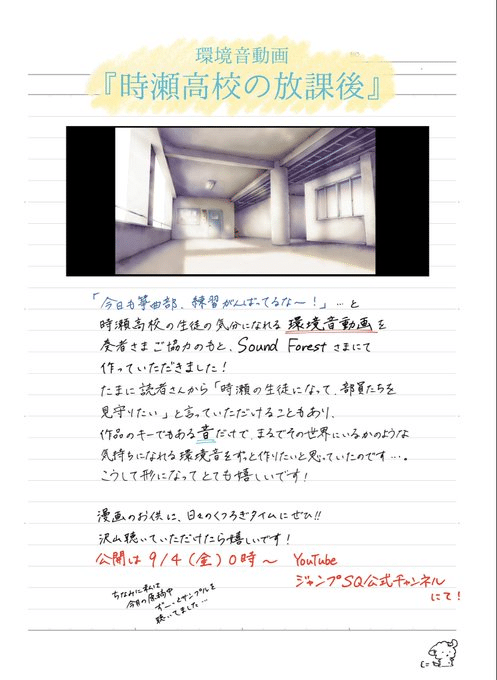 環境音動画
『時瀬高校の放課後』
「今日も箏曲部、練習がんばってるな〜！」…と
時瀬高校の生徒の気分になれる環境音動画を
奏者さまご協力のもと、Sound Forestさまにて
作っていただきました！
たまに読者さんから「時瀬の生徒になって、部員たちを
見守りたい」と言っていただけることもあり、
作品のキーでもある音だけで、まるでその世界にいるかのような
気持ちになれる環境音をずっと作りたいと思っていたのです…。
こうして形になってとても嬉しいです！
漫画のお供に、日々のくつろぎタイムにぜひ!!
沢山聴いていただけたら嬉しいです！
公開は9/4(金)0時〜 YouTube
ジャンプSQ公式チャンネル
にて！
ちなみに私は
今月の原稿中
ずーっとサンプルを
聴いてました…